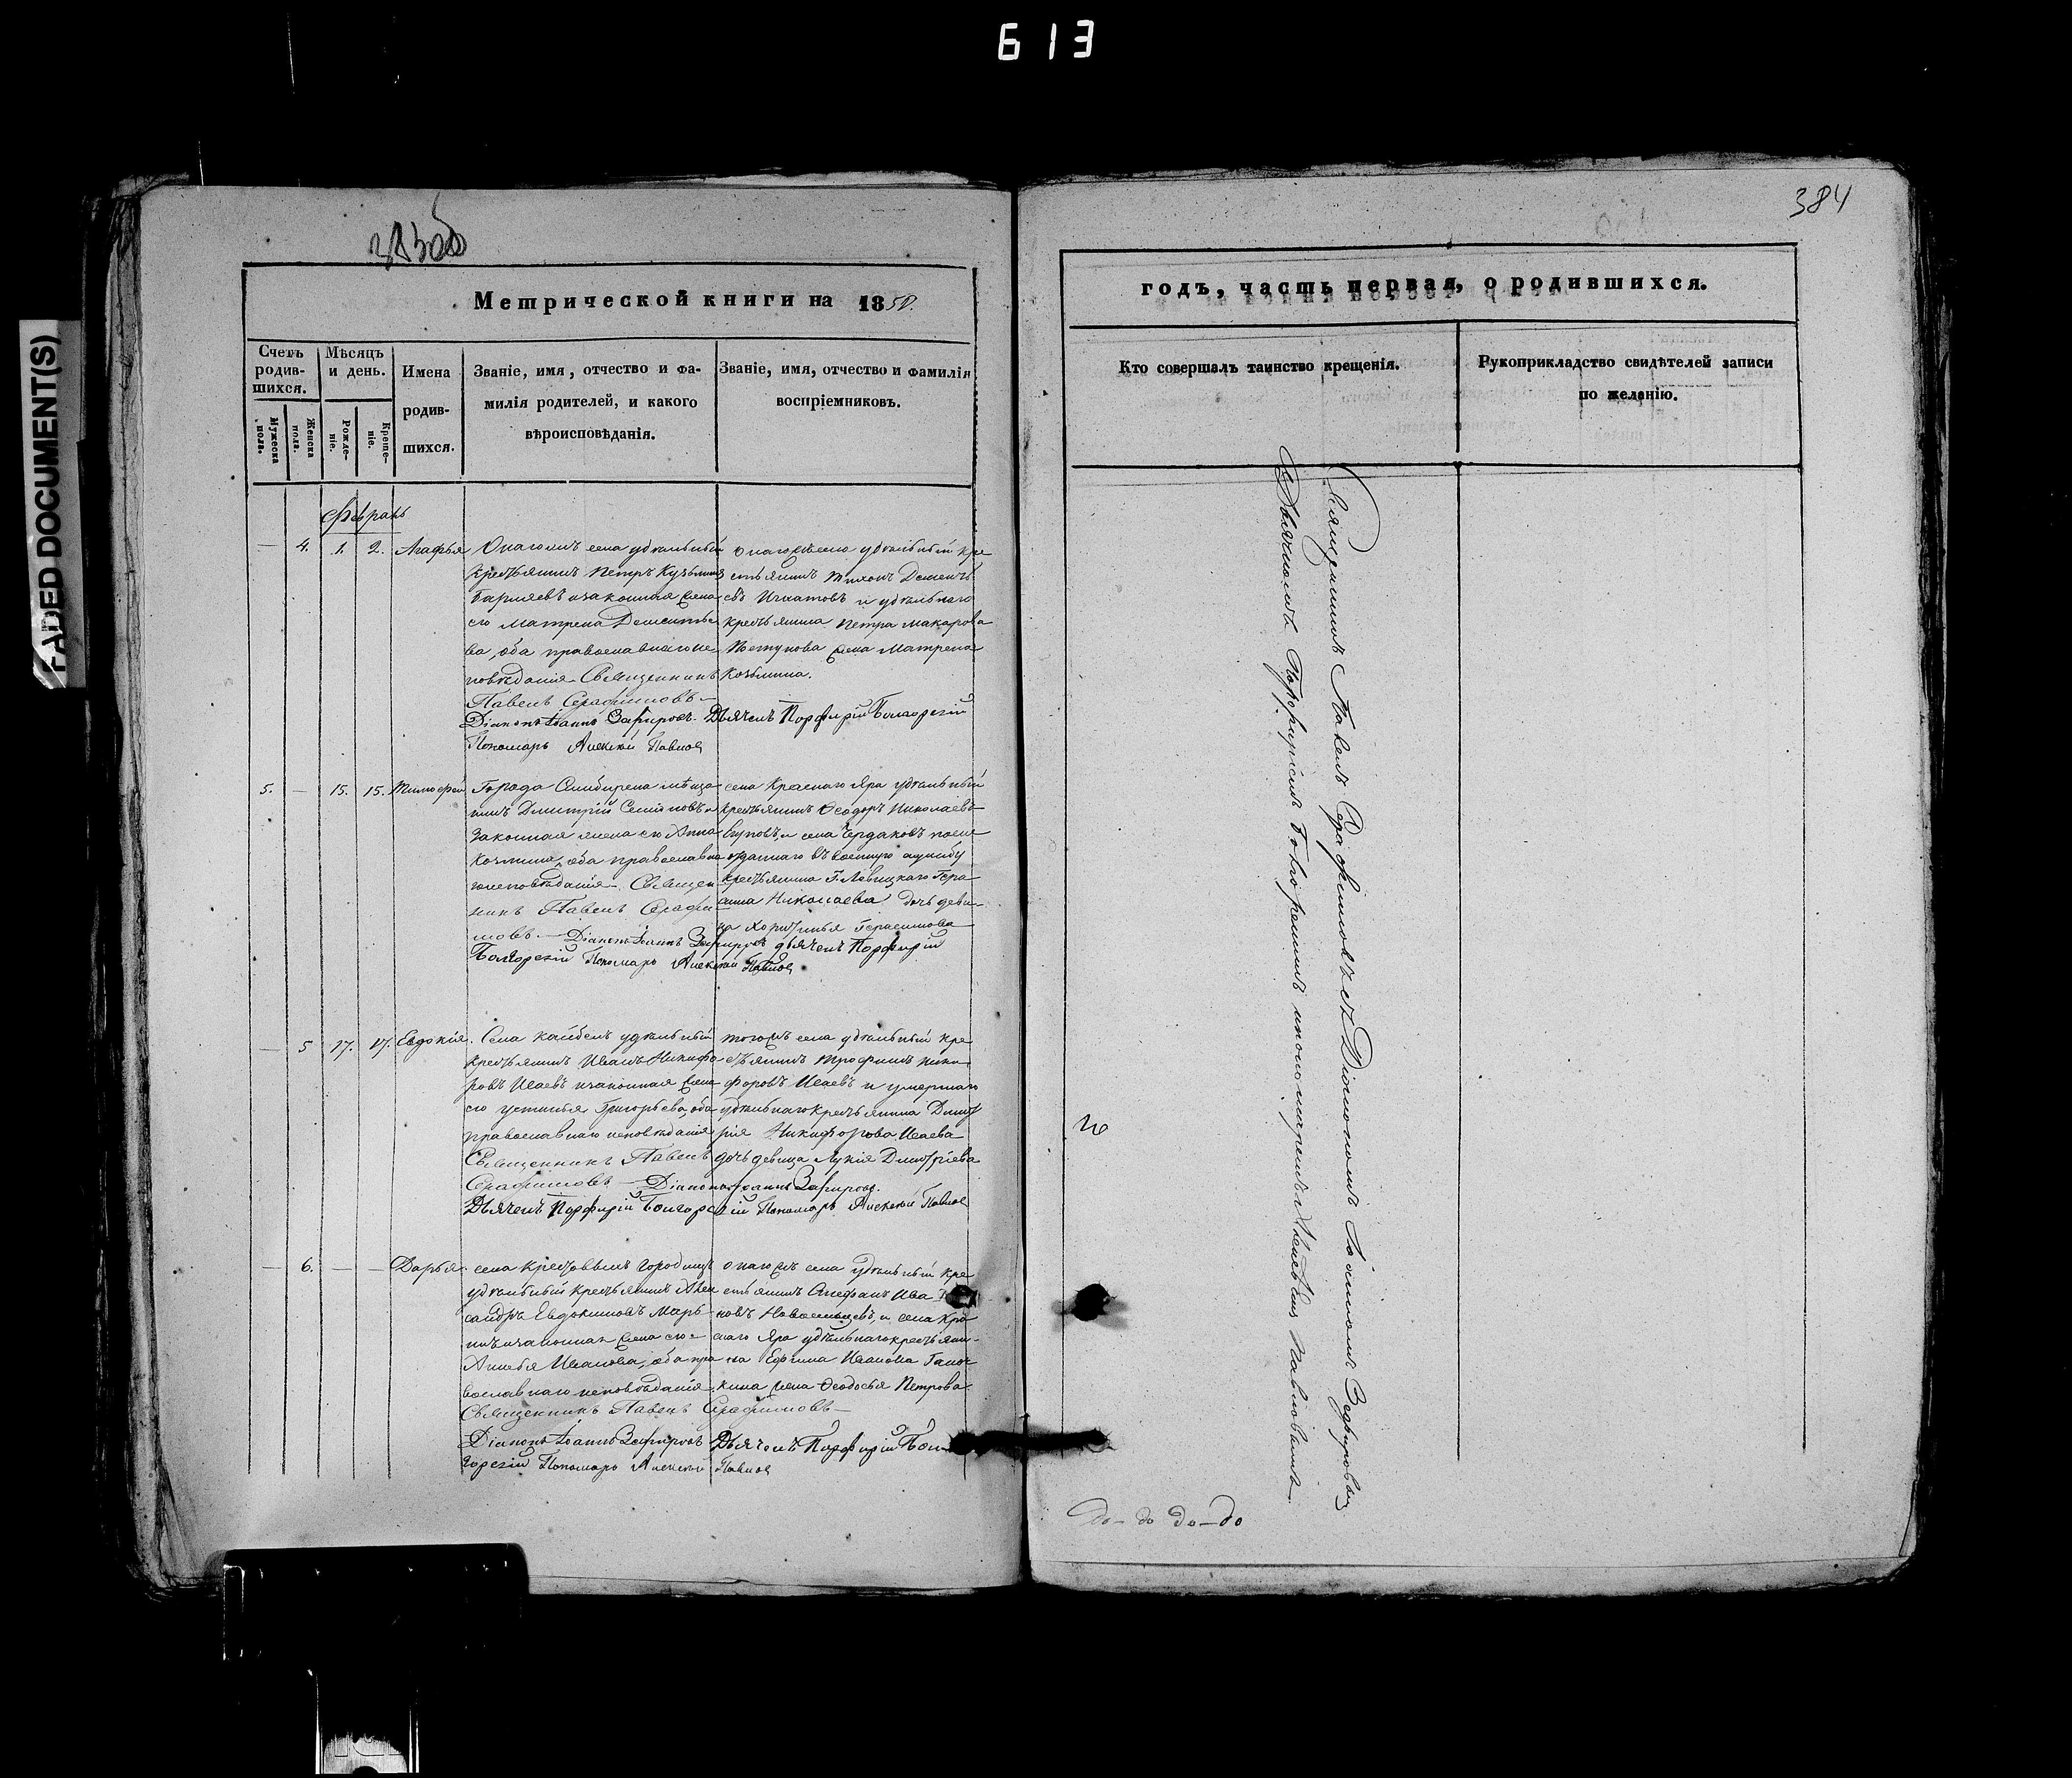 613
FADED DOCUMENT(S)
384
Метрической книги на 1850.
Счетъ родив-шихся.
Мужеска полъ.
Женска полъ.
Мѣсяцъ и день.
Рожде-ніе.
Креще-ніе.
Имена родив-шихся.
Званіе, имя, отчество и фа-
милія родителей, и какого
вѣроисповѣданія.
Званіе, имя, отчество и фамилія
воспріемниковъ.
Февраль
— 4. 1. 2. Агафья
Онагожъ села удѣльный
крестьянинъ Петръ Кузьминъ
и законная жена
его Матрена Дементье
ва, оба православнаго ис
повѣданія Священникъ
Павелъ Серафимовъ —
Діаконъ Іоаннъ Зефировъ. Дьячекъ Порфирій
Пономарь Алексѣй Павлов
онагожъ села удѣльный кре
стьянинъ Тихонъ Демен
евъ Игнатовъ и удѣльнаго
крестьянина Петра Макарова
жена Матрена
Козьмина.
5. — 15. 15. Тимофей
Города Симбирска мѣща
нинъ Дмитрій Семеновъ и
законная жена его Анна
оба православна
го исповѣданія. Священ
никъ Павелъ Серафи
мовъ. — Діаконъ Іоаннъ Зефировъ дьячекъ Порфирій
Пономарь Алексѣй Павлов
села Краснаго Яра удѣльный
крестьянинъ Ѳеодоръ Николаевъ
и села Чердаковъ
отданнаго въ военную службу
крестьянина Г. Левицкаго Гера
сима Николаева дочь деви
ца Хоритинья Герасимова
— 5 17. 17. Евдокія.
Села Кайбелъ удѣльный
крестьянинъ Иванъ Никифо
ровъ Исаевъ и законная жена
его Устинья Григорьева, оба
православнаго исповѣданія
Священникъ Павелъ
Серафимовъ — Діаконъ Іоаннъ Зефировъ.
Дьячекъ Порфирій Пономарь Алексѣй Павлов
тогожъ села удѣльный кре
стьянинъ Трофимъ Ники
форовъ Исаевъ и умершаго
удѣльнаго крестьянина Дмит
рія Никифорова Исаева
дочь девица Лукія Дмитріева
— 6. — — Дарья.
села Крестовыхъ Городищъ
удѣльный крестьянинъ Алек
сандръ Евдокимовъ Марь
инъ и законная жена его
Иванова, оба пра
вославнаго исповѣданія.
Священникъ Павелъ Серафимовъ —
Діаконъ Іоаннъ Зефировъ Дьячекъ Порфирій
Пономарь Алексѣй Павлов
онагожъ села удѣльный кре
стьянинъ Стефанъ Ива
новъ Новосельцевъ, и села Кра
снаго Яра удѣльнаго крестьяни
на Ефима Иванова
жена Ѳеодосья Петрова
годъ, часть первая, о родившихся.
Кто совершалъ таинство крещенія.
Рукоприкладство свидѣтелей записи
по желанію.
Священникъ Павелъ Серафимовъ съ Діакономъ Іоанномъ Зефировымъ
Дьячкомъ Порфиріемъ и пономаремъ Алексѣемъ Павловымъ.
до — до до — до